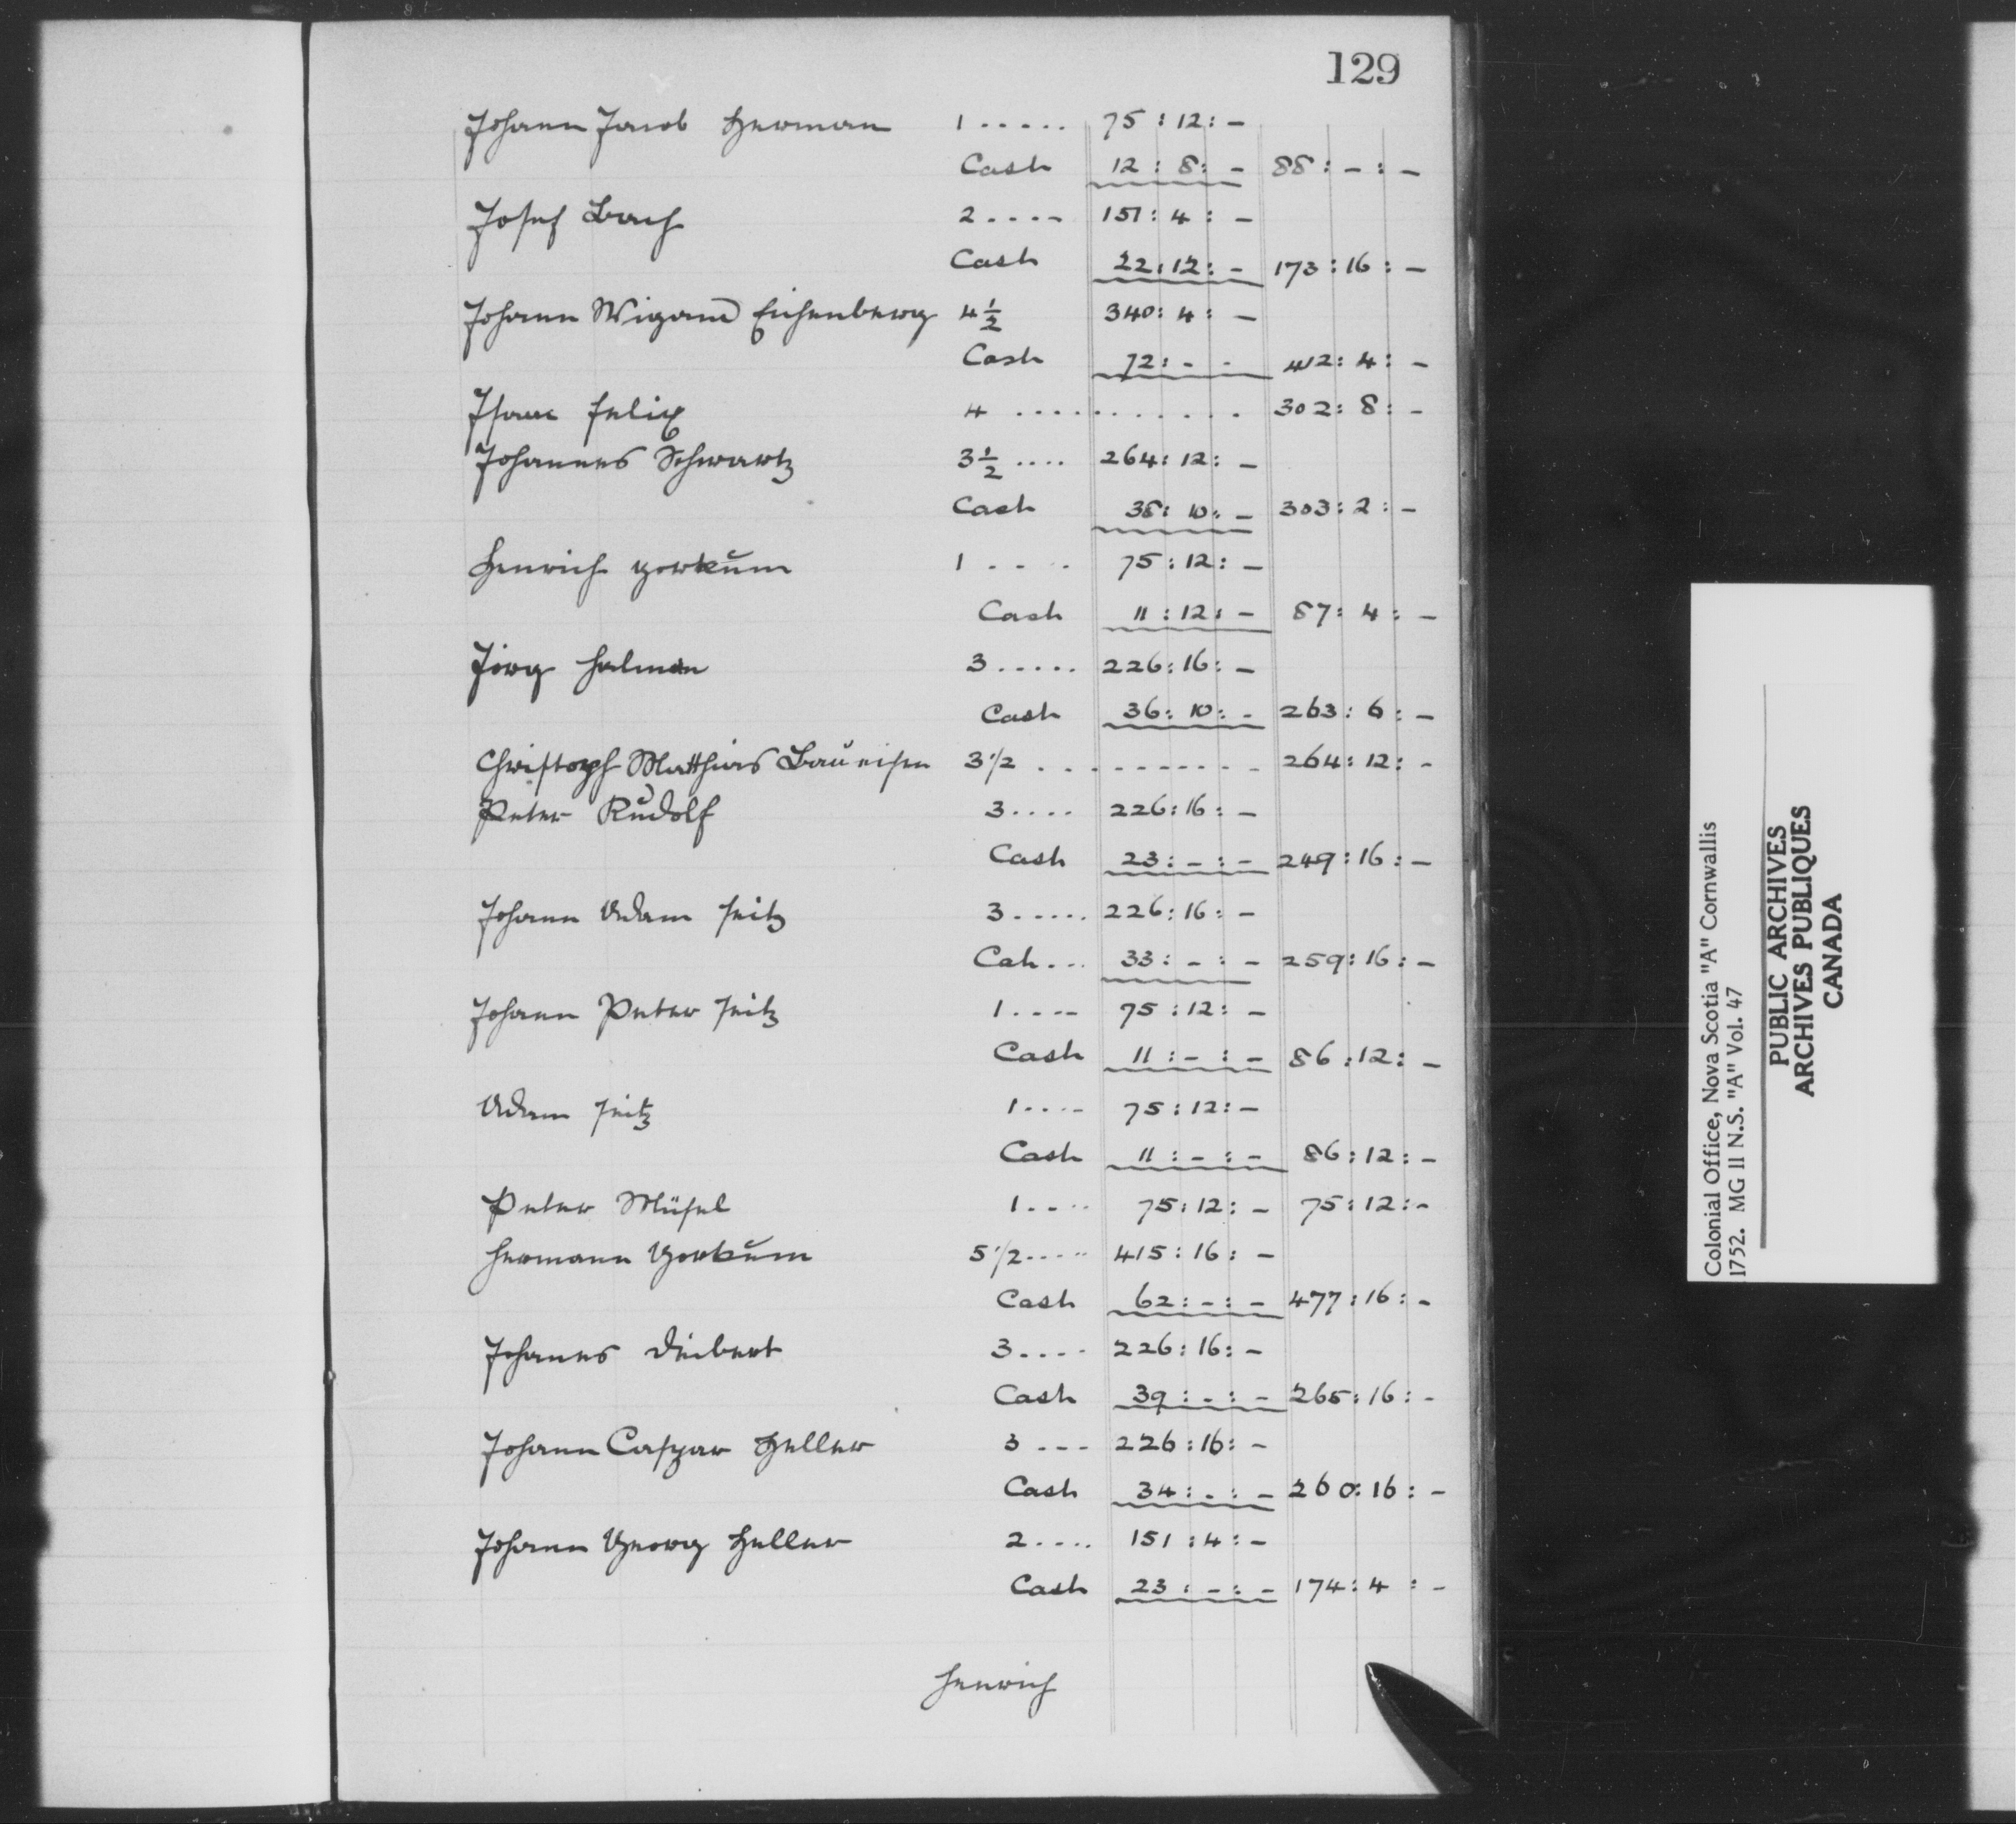 129
Johann Jacob Herman 1 ..... 75 : 12 : -
Cash 12 : 8 : - 88 : - : -
Josef Bach 2 .... 151 : 4 : -
Cash 22 : 12 : - 173 : 16 : -
Johann Wigand Eisenberg 4 1/2 340 : 4 : -
Cash 72 : - - 412 : 4 : -
Isaac Felix 4 .... 302 : 8 : -
Johannes Schwartz 3 1/2 .... 264 : 12 : -
Cash 38 : 10 : - 303 : 2 : -
Henrich Gorkum 1 .... 75 : 12 : -
Cash 11 : 12 : - 87 : 4 : -
Jörg Halman 3 ..... 226 : 16 : -
Cash 36 : 10 : - 263 : 6 : -
Christoph Matthias Baueisen 3 1/2 .... 264 : 12 : -
Peter Rudolf 3 .... 226 : 16 : -
Cash 23 : - : - 249 : 16 : -
Johann Adam Seitz 3 ..... 226 : 16 : -
Cah ... 33 : - : - 259 : 16 : -
Johann Peter Seitz 1 .... 75 : 12 : -
Cash 11 : - : - 86 : 12 : -
Adam Seitz 1 .... 75 : 12 : -
Cash 11 : - : - 86 : 12 : -
Peter Müsel 1 .... 75 : 12 : - 75 : 12 : -
Hermann Gorkum 5 1/2 ..... 415 : 16 : -
Cash 62 : - : - 477 : 16 : -
Johanes Deibert 3 .... 226 : 16 : -
Cash 39 : - : - 265 : 16 : -
Johann Caspar Heller 3 --- 226 : 16 : -
Cash 34 : - : - 260 : 16 : -
Johann Georg Heller 2 .... 151 : 4 : -
Cash 23 : - : - 174 : 4 : -
Henrich
Colonial Office, Nova Scotia "A" Cornwallis
1752. MG 11 N.S. "A" Vol. 47
PUBLIC ARCHIVES
ARCHIVES PUBLIQUES
CANADA